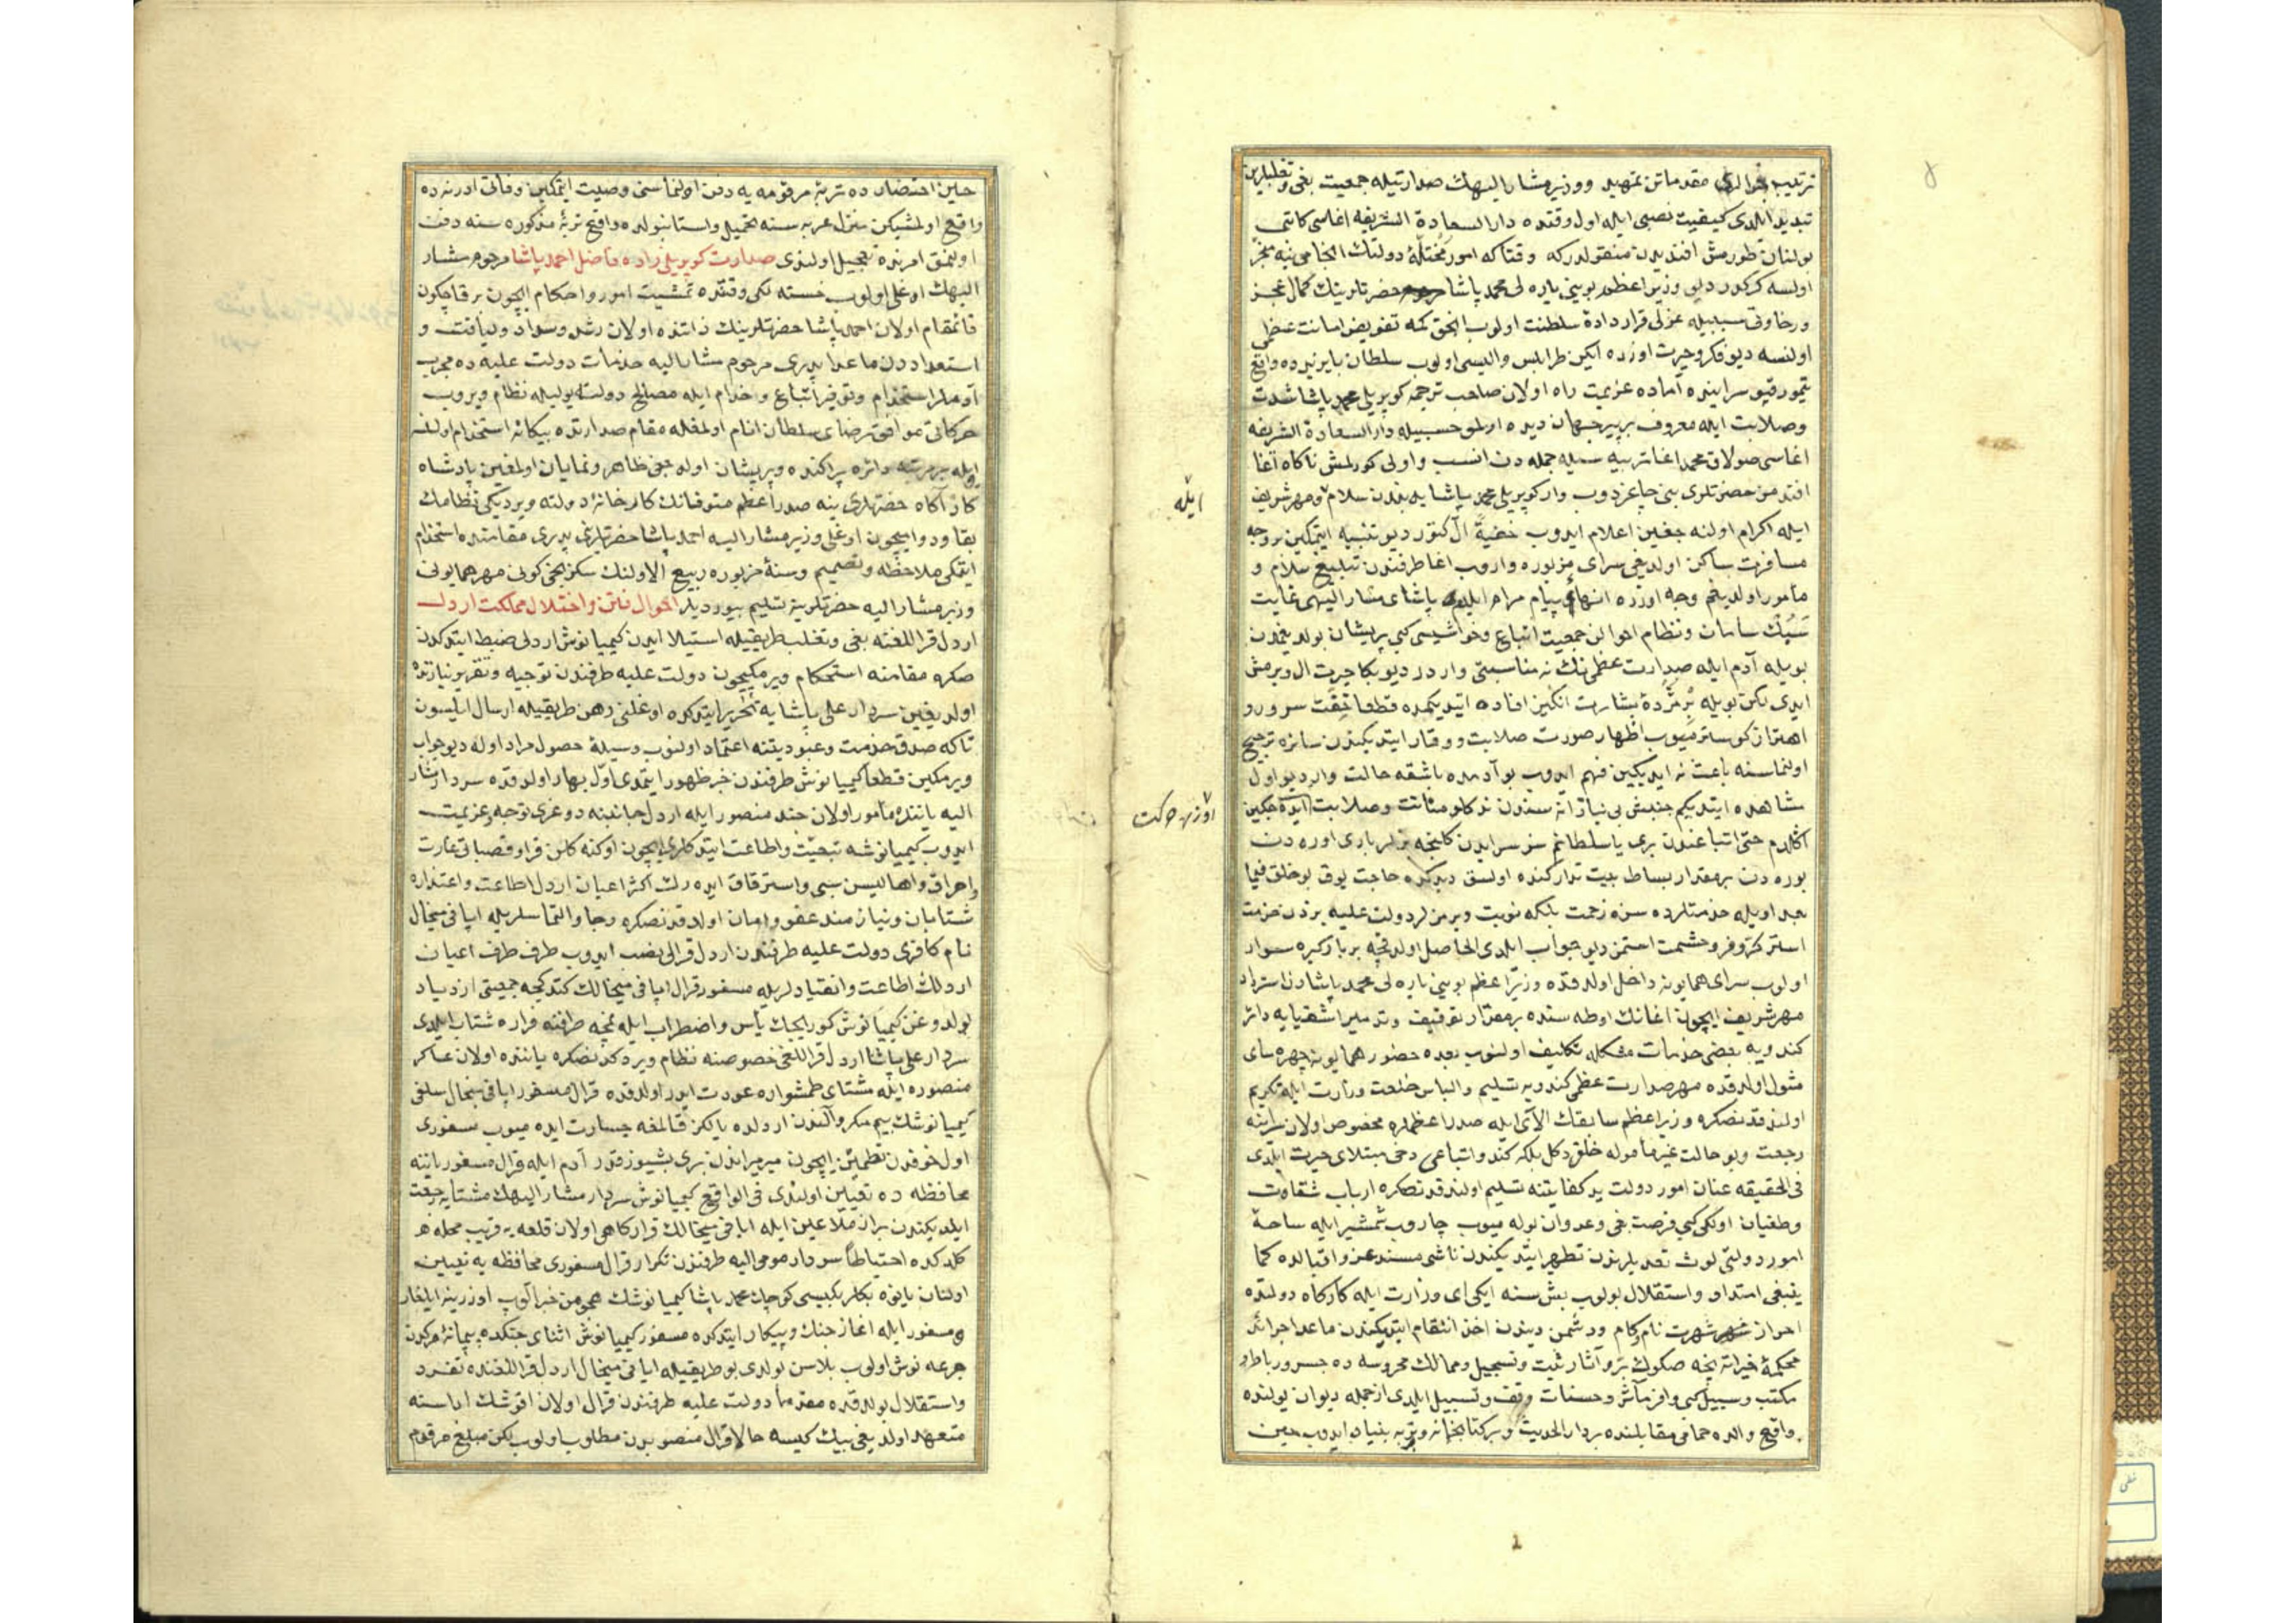 ترتيب مقدماتن تمهيد ووزير مشار اليهك صدارتيله جمعيت بغى وتغلبلرين
تبديد ايلدى كيفيت نصبى ايله اول وقتده دار السعادة الشريفه اغاسى كاتبى
بولنان طورمش افنديدن منقولدركه وقتاكه امور مختلۀ دولتك انجامى نيه منجر
اولسه كركدر ديو وزير اعظم بوينى ياره لى محمد پاشا حضرتلرينك كمال عجز
ورخاوتى سببيله عزلى قراردادۀ سلطنت اولوب انحق كمه تفويض امانت عظمى
اولنسه ديو فكر وحيرت اوزره ايكن طرابلس واليسى اولوب سلطان بايزيده واقع
تيمورقپو سراينده آماده عزيمت راه اولان صاحب ترجمه كوپريلى محمد پاشا شدت
وصلابت ايله معروف بر پير جهان ديده اولمق حسبيله دار السعادة الشريفه
اغاسى صولاق محمد اغا تربيه سيله جمله دن انسب واولى كورلمش ناكاه آغا
افندمز حضرتلرى بنى چاغردوب وار كوپريلى محمد پاشايه بندن سلام ومهر شريف
ايله اكرام اولنه جغين اعلام ايدوب خفيةً آل كتور ديو تنبيه ايتمكين بر وجه
مسافرت ساكن اولديغى سراى مزبوره واروب اغا طرفندن تبليغ سلام و
مأمور اولديغم وجه اوزره انهاء پيام مرام ايلدم پاشاى مشار اليهى غايت
سبك سامان ونظام احوالن جمعيت اتباع وحواشيسى كبى پريشان بولديغمدن
بويله آدم ايله صدارت عظمى نك نه مناسبتى واردر ديو بكا حيرت ال ويرمش
ايدى لكن بويله بر مژدۀ بشارت انكيز افاده ايتديكمده قطعا خفت سرور و
اهتزاز كوسترميوب اظهار صورت صلابت ووقار ايتديكندن سائره ترجيح
اولنماسنه باعث نه ايديكين فهم ايدوب بو آدمده باشقه حالت وار ديو اول
مشاهده ايتديكم جنبش بى نيازانه سندن نه كلو متانت وصلابت ايده جكين
اكلادم حتى اتباعندن برى يا سلطانم سز سرايدن كلنجه بزلر بارى اوره دن
بوره دن بر مقدار بساط بيت تداركنده اولسق ديدكده حاجت يوق بو خلق فيما
بعد اويله خدمتلرده سزه زحمت بلكه نوبت ويرمزلر دولت عليه بزدن خدمت
استر كروفر وحشمت استمز ديو جواب ايلدى الحاصل اولدقچه بر باركيره سوار
اولوب سراى همايونه داخل اولدقده وزير اعظم بوينى ياره لى محمد پاشادن استرداد
مهر شريف ايچون اغانك اوطه سنده بر مقدار توقيف وتدمير اشقيايه دائر
كندويه بعضى خدمات مشكله تكليف اولنوب بعده حضور همايونه چهره ساى
مثول اولدقده مهر صدارت عظمى كندويه تسليم والباس خلعت وزارت ايله تكريم
اولندقدنصكره وزير اعظم سابقك الآى ايله صدر اعظملره مخصوص اولان سراينه
رجعت وبو حالت غير مأموله خلق دكل بلكه كندو اتباعى دخى مبتلاى حيرت ايلدى
فى الحقيقه عنان امور دولت يد كفايتنه تسليم اولندقدنصكره ارباب شقاوت
وطغيان اولكى كبى فرصت بغى وعدوان بوله ميوب چاروب شمشير ايله ساحۀ
امور دولتى لوث تعديلرندن تطهير ايتديكندن ناشى مسند عز واقبالده كما
ينبغى امتداد واستقلال بولوب بش سنه ايكى اى وزارت ايله كاركاه دولتده
احراز شهرت نام وكام ودشمن ديندن اخذ انتقام ايتديكندن ماعدا جرائد
محكمۀ خيراته نيجه صكوك بر وآثار ثبت وتسجيل وممالك محروسه ده جسر ورباط و
مكتب وسبيل كبى وافر مآثر وحسنات وقف وتسبيل ايلدى ازجمله ديوان يولنده
واقع والده حمامى مقابلنده بر دار الحديث وبر كتابخانه وتربه بنياد ايدوب حين
ايله
اوزره حركت
حين احتضارده تربۀ مرقومه يه دفن اولنماسنى وصيت ايتمكين وفاتى ادرنه ده
واقع اولمشيكن منزل عربه سنه تحميل واستانبولده واقع تربۀ مذكوره سنه دفن
اولنمق امرنده تعجيل اولندى صدارت كوپريلى زاده فاضل احمد پاشا مرحوم مشار
اليهك اوغلى اولوب خسته لكى وقتده تمشيت امور واحكام ايچون بر قاچ كون
قائمقام اولان احمد پاشا حضرتلرينك ذاتنده اولان رشد وسداد ولياقت و
استعداددن ماعدا پدرى مرحوم مشار اليه خدمات دولت عليه ده مجرب
آدملر استخدام وتوفير اتباع وخدام ايله مصالح دولته يوليله نظام ويروب
حركاتى موافق رضاى سلطان انام اولمغله مقام صدارتده بيكانه استخدام اولنسه
ايله بر مرتبه دائره پراكنده وپريشان اوله جغى ظاهر ونمايان اولمغين پادشاه
كار آكاه حضرتلرى ينه صدر اعظم متوفانك كارخانۀ دولته ويرديكى نظامك
بقا ودوامىچون اوغلى وزير مشار اليه احمد پاشا حضرتلرينى پدرى مقامنده استخدام
ايتمكى ملاحظه وتصميم وسنۀ مزبوره ربيع الاولنك سكزنجى كونى مهر همايونى
وزير مشار اليه حضرتلرينه تسليم بيورديلر احوال فتن واختلال مملكت اردل
اردل قراللغنه بغى وتغلب طريقيله استيلا ايدن كيميانوش اردلى ضبط ايتدكدن
صكره مقامنه استحكام ويرمكيچون دولت عليه طرفندن توجيه وتقرير نيازنده
اولديغين سردار على پاشايه تحرير ايتدكده اوغلنى رهن طريقيله ارسال ايلسون
تاكه صدق خدمت وعبوديتنه اعتماد اولنوب وسيلۀ حصول مراد اوله ديو جواب
ويرمكين قطعا كيميانوش طرفندن خبر ظهور ايتمدى اول بهار اولدقده سردار مشار
اليه ياننده مأمور اولان جند منصور ايله اردل جانبنه دوغرى توجه وعزيمت
ايدوب كيميانوشه تبعيت واطاعت ايتدكلرى ايچون اوكنه كلن قرا وقصباتى غارت
واحراق واهاليسن سبى واسترقاق ايده رك اكثر اعيان اردل اطاعت واعتذاره
شتابان ونيازمند عفو وامان اولدقدنصكره رجا والتماسلريله اپافى ميخال
نام كافرى دولت عليه طرفندن اردل قرالى نصب ايدوب طرف طرف اعيان
اردلك اطاعت وانقيادلريله مسفور قرال اپافى ميخالك كتدكجه جمعيتى ازدياد
بولدوغن كيميانوش كوريجك يأس واضطراب ايله نمچه طرفنه فراره شتاب ايلدى
سردار على پاشا اردل قراللغى خصوصنه نظام ويردكدنصكره ياننده اولان عساكر
منصوره ايله مشتاى طمشواره عودت ايدر اولدقده قرال مسفور اپافى ميخال سلفى
كيميانوشك بيم مكر وآلندن اردلده يالكز قالمغه جسارت ايده ميوب مسفورى
اول خوفدن تطمين ايچون ميرميراندن برى بشيوز قدر آدم ايله قرال مسفور ياننه
محافظه ده تعيين اولندى فى الواقع كيميانوش سردار مشار اليهك مشتايه رجعت
ايلديكندن بر از ملاعين ايله اپافى ميخالك قراركاهى اولان قلعه يه قريب محله
كلدكده احتياطاً سردار مومى اليه طرفندن تكرار قرال مسفورى محافظه يه تعيين
اولنان يانوه بكلربكيسى كوچك محمد پاشا كيميانوشك هجومن خبر آلوب اوزرينه ايلغار
ومسفور ايله اغاز جنك وپيكار ايتدكده مسفور كيميانوش اثناى جنكده پيمانۀ مركدن
جرعه نوش اولوب بلاسن بولدى بو طريقيله اپافى ميخال اردل قراللغنده تفرد
واستقلال بولدقده مقدما دولت عليه طرفندن قرال اولان اقوشك اداسنه
متعهد اولديغى بيك كيسه حالا قرال منصوبدن مطلوب اولوب لكن مبلغ مرقوم